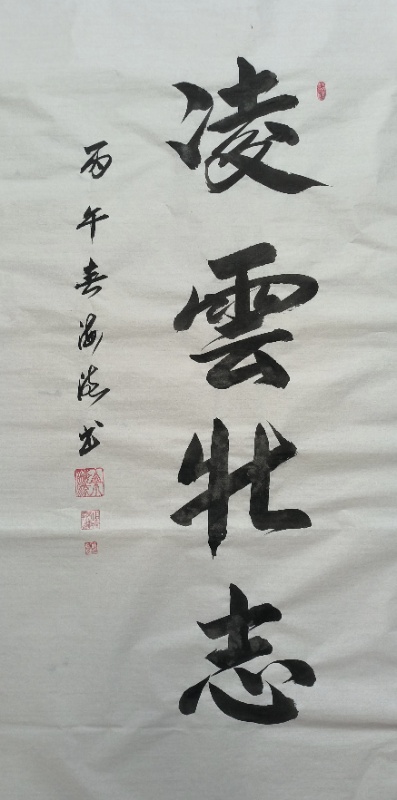 凌雲壮志
丙午春海波书